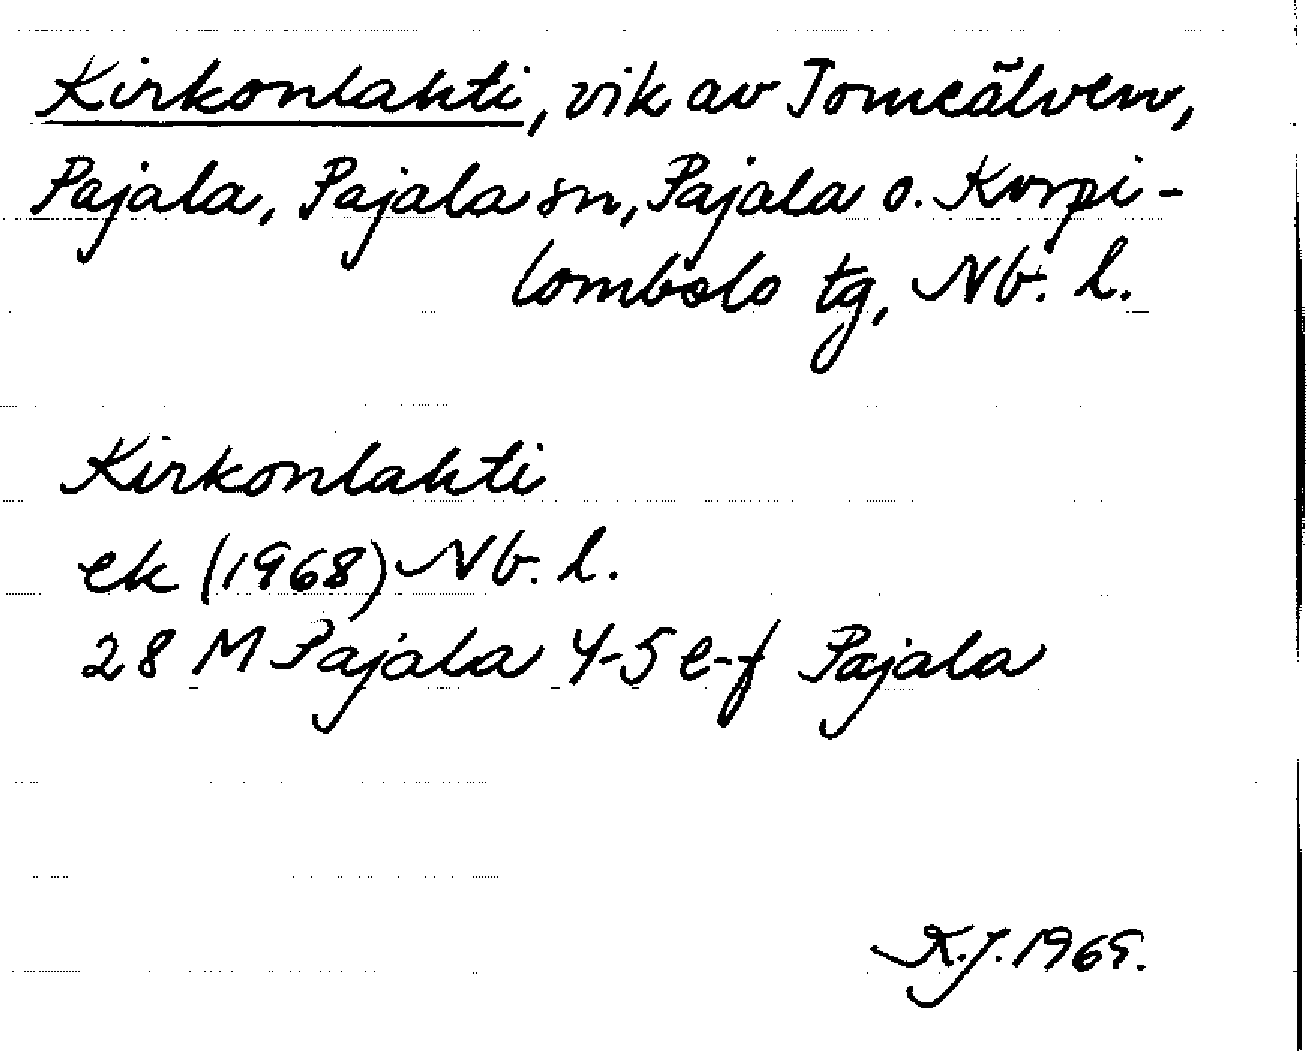 Kirkonlahti, vik av Torneälven,
Pajala, Pajala sn, Pajala o. Korpi-
lombolo tg, Nb. l.
Kirkonlahti
ek (1968) Nb. l.
28 M Pajala 4-5 e-f Pajala
K.J. 1969.